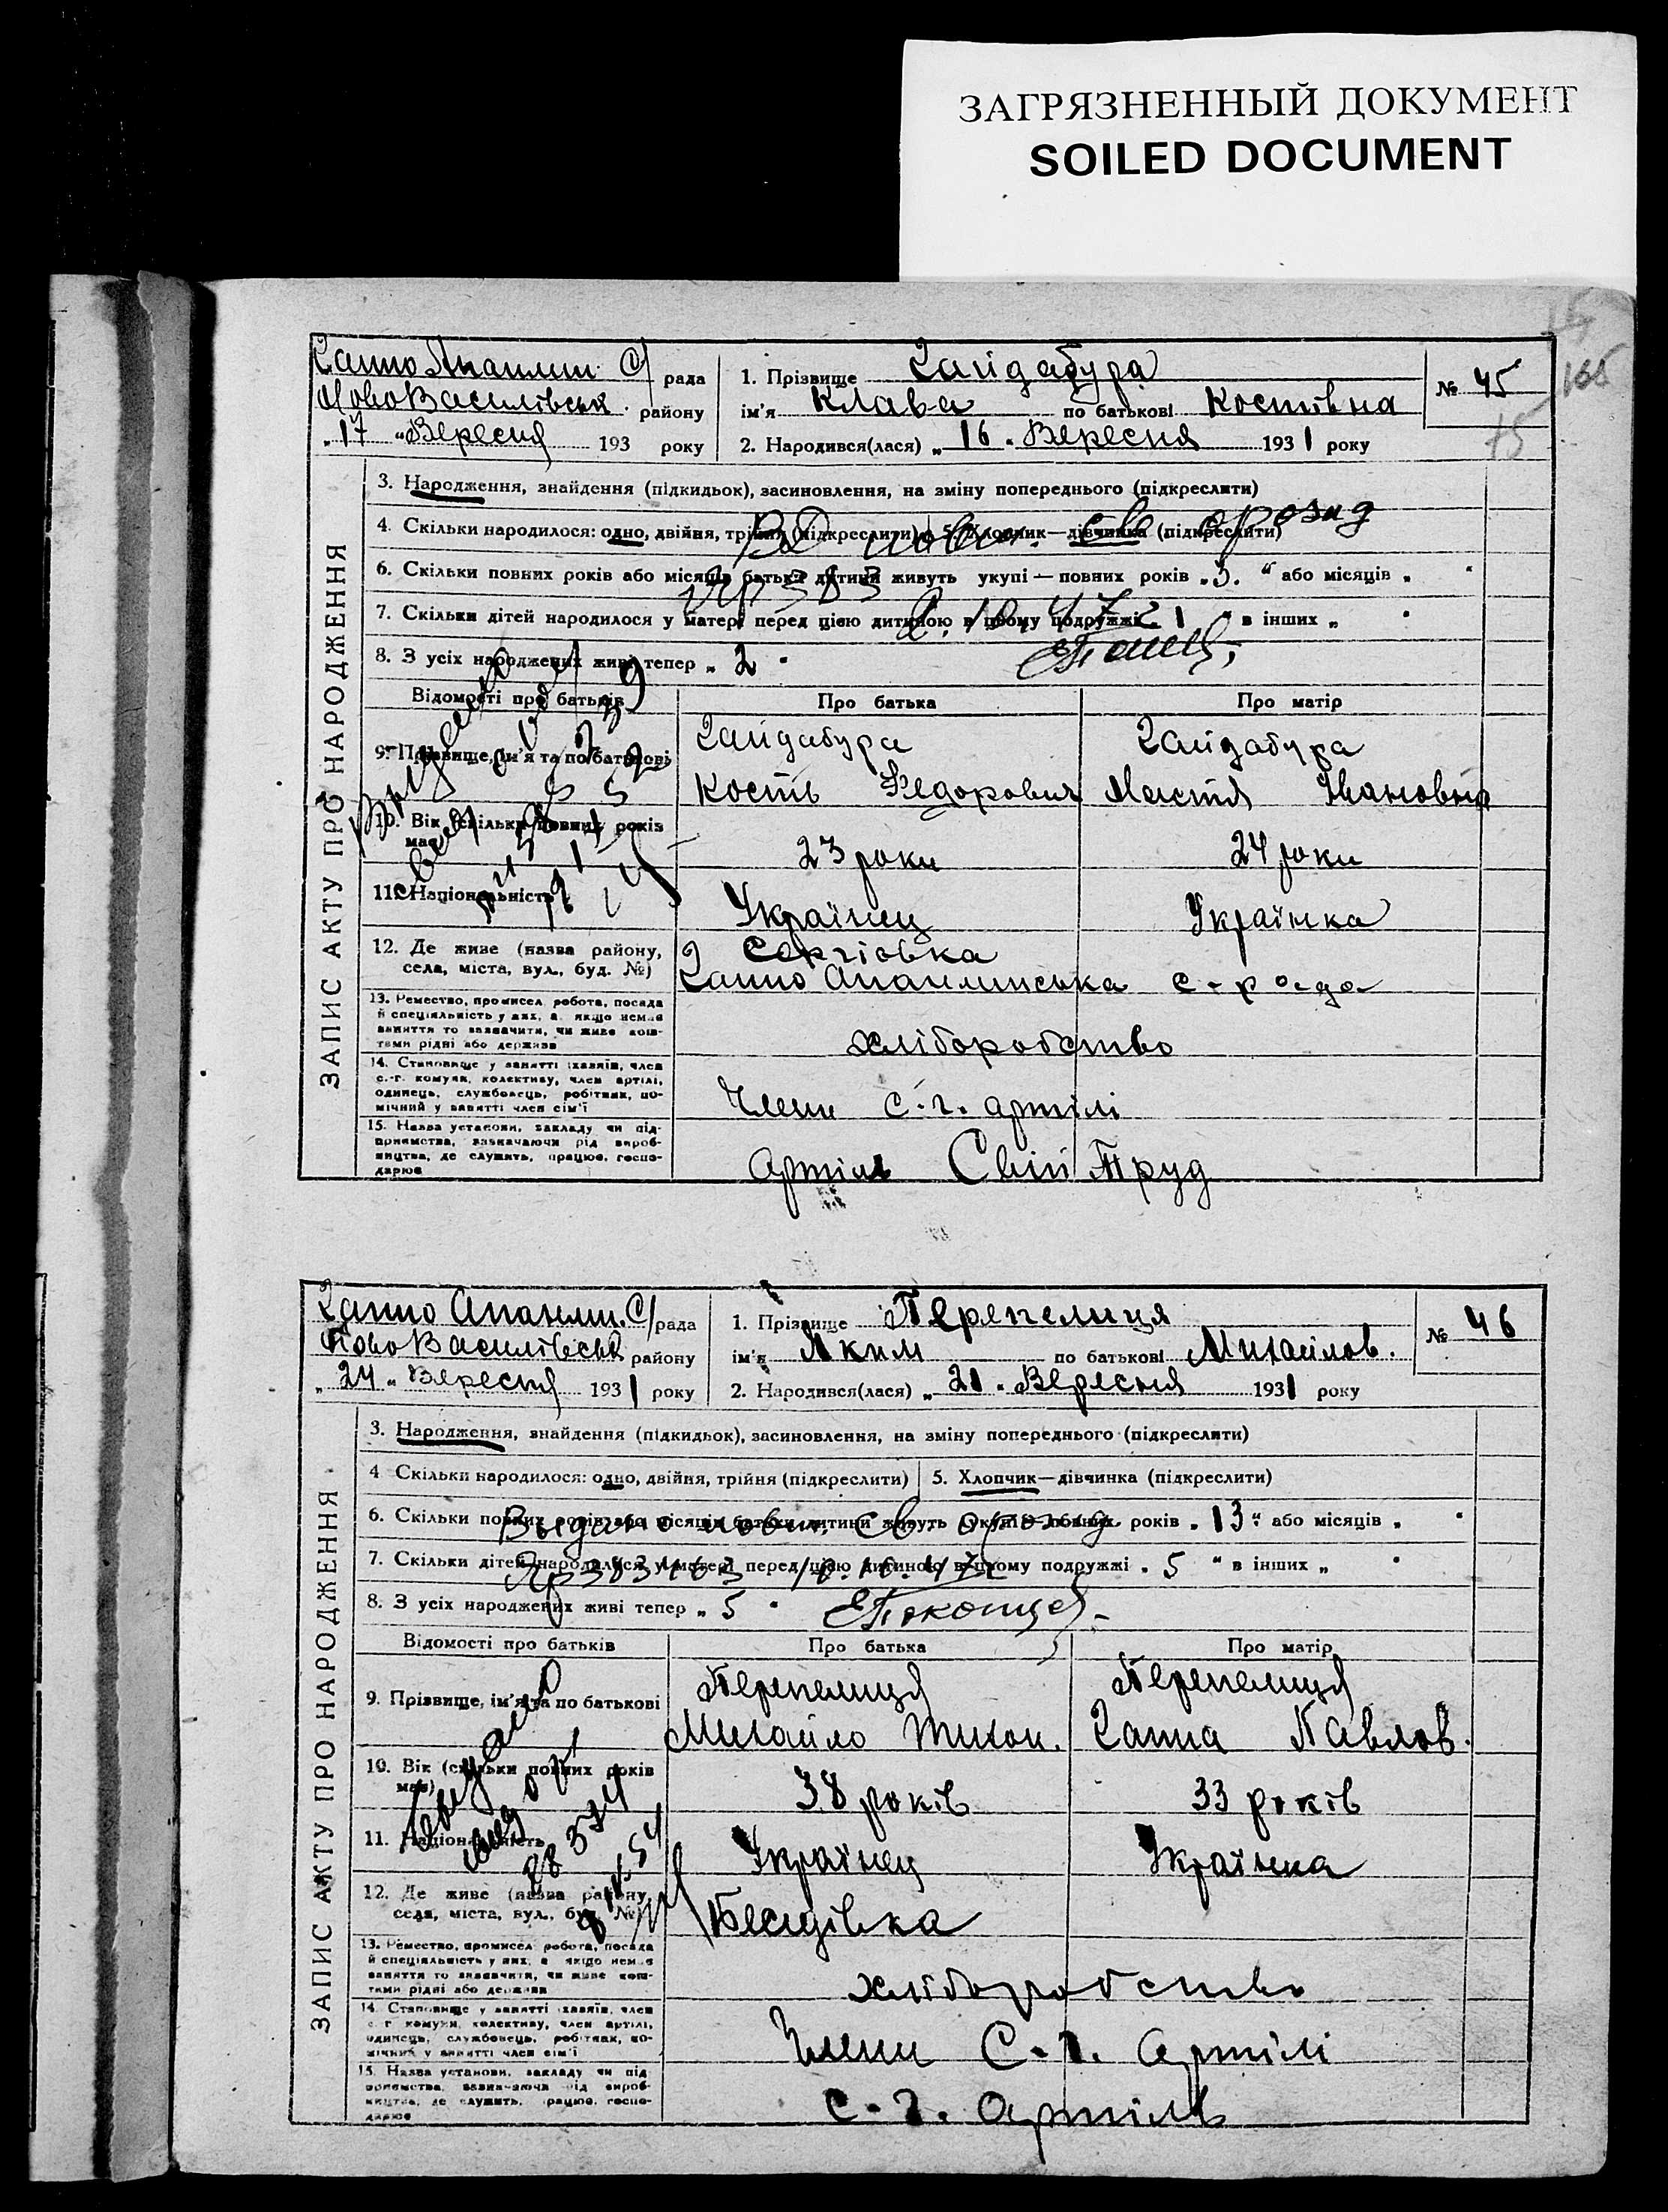 ЗАГРЯЗНЕННЫЙ ДОКУМЕНТ
SOILED DOCUMENT
165
75
ЗАПИС АКТУ ПРО НАРОДЖЕННЯ
С/ рада
НовоВасилівськ. району
"17" Вересня 193 року
1. Прізвище Гайдабура
ім'я Клава по батькові Костівна
2. Народився(лася) "16" Вересня 1931 року
№ 45
3. Народження, знайдення (підкидьок), засиновлення, на зміну попереднього (підкреслити)
4. Скільки народилося: одно, двійня, трійня (підкреслити) 5. Хлопчик—дівчинка (підкреслити)
6. Скільки повних років або місяців батьки дитини живуть укупі — повних років "3." або місяців "
7. Скільки дітей народилося у матері перед цією дитиною в цьому подружжі 1 " в інших "
8. З усіх народжених живі тепер "2"
Відомості про батьків Про батька Про матір
9. Прізвище, ім'я та по батькові Гайдабура Гайдабура
Кость Федорович Івановна
10. Вік (скільки повних років має) 23 роки 24 роки
11. Національність Українец Українка
12. Де живе (назва району, села, міста, вул., буд. №) Сергіовка
с-рада
13. Ремество, промисел робота, посада
й спеціяльність у них, а якщо немає
заняття то зазначити, чи живе кош-
тами рідні або держави
хліборобство
14. Становище у занятті (хазяїн, член
с.-г. комуни, колективу, член артілі,
одинець, службовець, робітник, по-
мічний у занятті член сім'ї
Члени с.-г. артілі
15. Назва установи, закладу чи під-
приємства, зазначаючи рід вироб-
ництва, де служить, працює, госпо-
дарює
Артіль Свій Труд
ЗАПИС АКТУ ПРО НАРОДЖЕННЯ
С/ рада
НовоВасилівськ району
"24" Вересня 1931 року
1. Прізвище Перепелиця
ім'я Яким по батькові Михайлов.
2. Народився(лася) "21" Вересня 1931 року
№ 46
3. Народження, знайдення (підкидьок), засиновлення, на зміну попереднього (підкреслити)
4 Скільки народилося: одно, двійня, трійня (підкреслити) 5. Хлопчик—дівчинка (підкреслити)
6. Скільки повних років або місяців батьки дитини живуть укупі — повних років "13" або місяців "
7. Скільки дітей народилося у матері перед цією дитиною в цьому подружжі "5" в інших "
8. З усіх народжених живі тепер "5"
Відомості про батьків Про батька Про матір
9. Прізвище, ім'я та по батькові Перепелиця Перепелиця
Михайло Тихон. Ганна Павлов.
10. Вік (скільки повних років має) 38 років 33 років
11. Національність Українец Українка
12. Де живе (назва району, села, міста, вул., буд. №)
13. Ремество, промисел робота, посада
й спеціяльність у них, а якщо немає
заняття то зазначити, чи живе кош-
тами рідні або держави
хліборобство
14. Становище у занятті (хазяїн, член
с. г комуни, колективу, член артілі,
одинець, службовець, робітник, по-
мічний у занятті член сім'ї
Члени С.-г. артілі
15. Назва установи, закладу чи під
приємства, зазначаючи рід вироб-
ництва, де служить, працює, госпо-
дарює
С.-г. Артіль